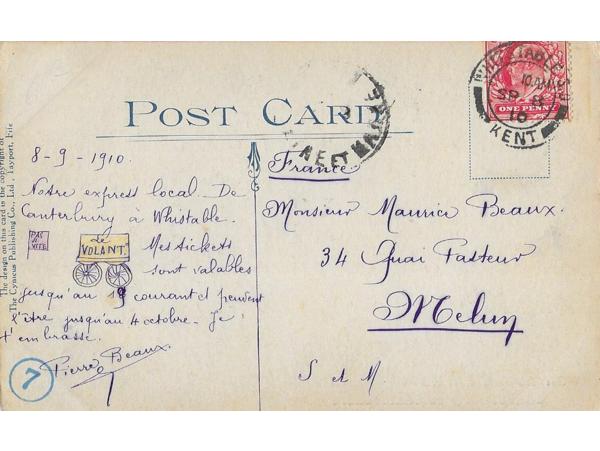 The design on this card is the copyright of
The Cynicus Publishing Co., Ltd., Tayport, Fife
POST CARD
WHITSTABLE
10.AM
SP 8
10
KENT
ONE PENNY
ET MARNE
8-9-1910.
France
Notre express local. De
Canterbury à Whistable.
PAS
VITE
Le
VOLANT.
Mes tickets
sont valables
jusqu'au 19 courant et peuvent
l'être jusqu'au 4 octobre. Je
t'embrasse.
Pierre Beaux.
7
Monsieur Maurice Beaux.
34 Quai Pasteur
Melun
S et M.